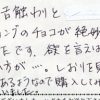 舌触りと
ングのチョコが絶妙
です。欲を言えば
方が…。しおりを見
あるようなので購入してみ